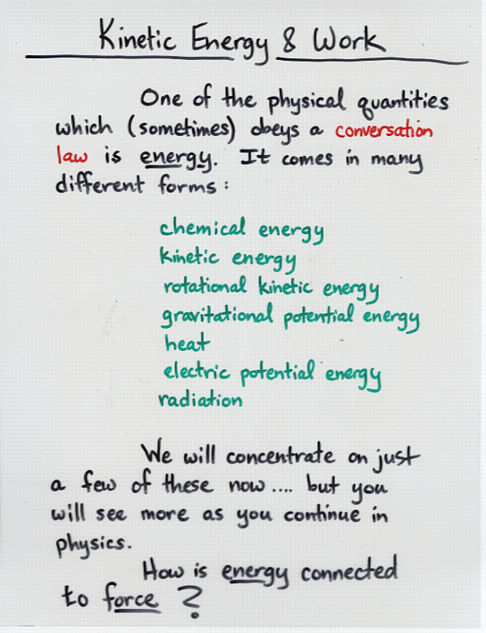 Kinetic Energy & Work
One of the physical quantities
which (sometimes) obeys a conversation
law is energy. It comes in many
different forms:
chemical energy
kinetic energy
rotational kinetic energy
gravitational potential energy
heat
electric potential energy
radiation
We will concentrate on just
a few of these now .... but you
will see more as you continue in
physics.
How is energy connected
to force ?